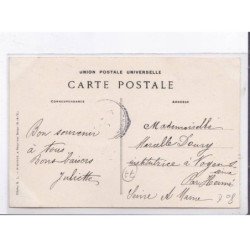 UNION POSTALE UNIVERSELLE
CARTE POSTALE
CORRESPONDANCE
ADRESSE
Bon souvenir
à tous
Bons baisers
Juliette
Mademoiselle
Marcelle Daury
institutrice à Voyenne
par
Seine et Marne